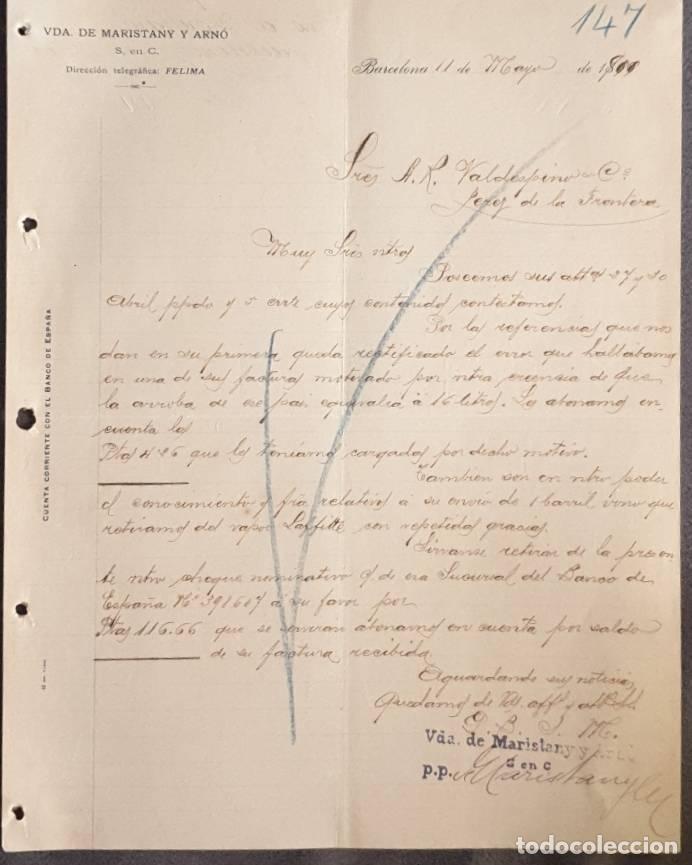 147
VDA. DE MARISTANY Y ARNÓ
S. en C.
Dirección telegráfica: FELIMA
Barcelona 11 de Mayo de 1900
Sres A. R. Valdespino & Cº
Jerez de la Frontera
Muy Sres ntros
Poseemos sus att 27 y 30
Abril ppdo y 5 crrte cuyo contenido contestamos.
Por las referencias que nos
dan en su primera queda rectificado el error que hallábamos
en una de sus facturas motivado por ntra creencia de que
la arroba de ese pais equivalia á 16 litros. Le abonamos en
cuenta las
Ptas 4.26 que les teníamos cargadas por dicho motivo.
Tambien son en ntro poder
el conocimiento y fra relativos á su envio de 1 barril vino que
retiramos del vapor Laffitte con repetidas gracias.
Sirvanse retirar de la presen
te ntro cheque nominativo de esa Sucursal del Banco de
España Nº 391607 á su favor por
Ptas 116.66 que se serviran abonarnos en cuenta por saldo
de su factura recibida.
Aguardando sus noticias
Quedamos de Vds. aff y att
Q. B. S. M.
Vda. de Maristany y Arnó
S en C
p.p. Maristany
CUENTA CORRIENTE CON EL BANCO DE ESPAÑA
todocoleccion